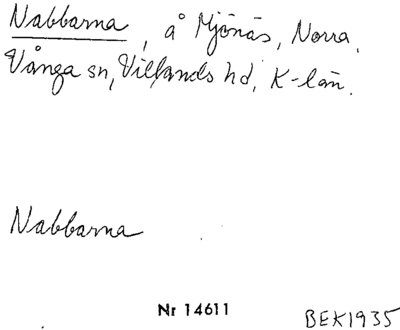 Nabbarna, å Mjönäs, Norra
Vånga sn, Villands hd, K-län.
Nabbarna
Nr 14611
BEK1935